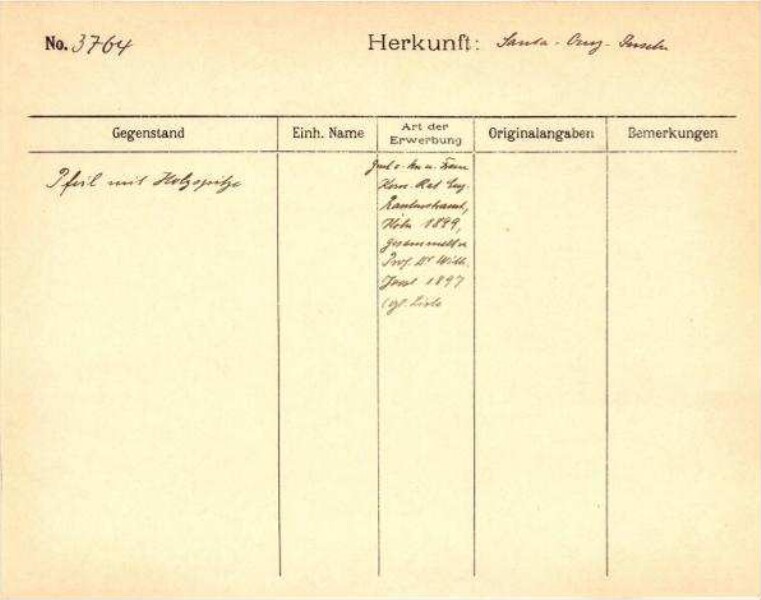 No. 3764
Herkunft: Santa-Cruz-Inseln
Gegenstand
Einh. Name
Art der Erwerbung
Originalangaben
Bemerkungen
Pfeil mit Holzspitze
Gesch. v. Hrn u. Frau
Kom. Rat Eug.
Rautenstrauch,
Köln 1899,
gesammelt v.
Prof. Dr Wilh.
Joest 1897
(vgl. Liste